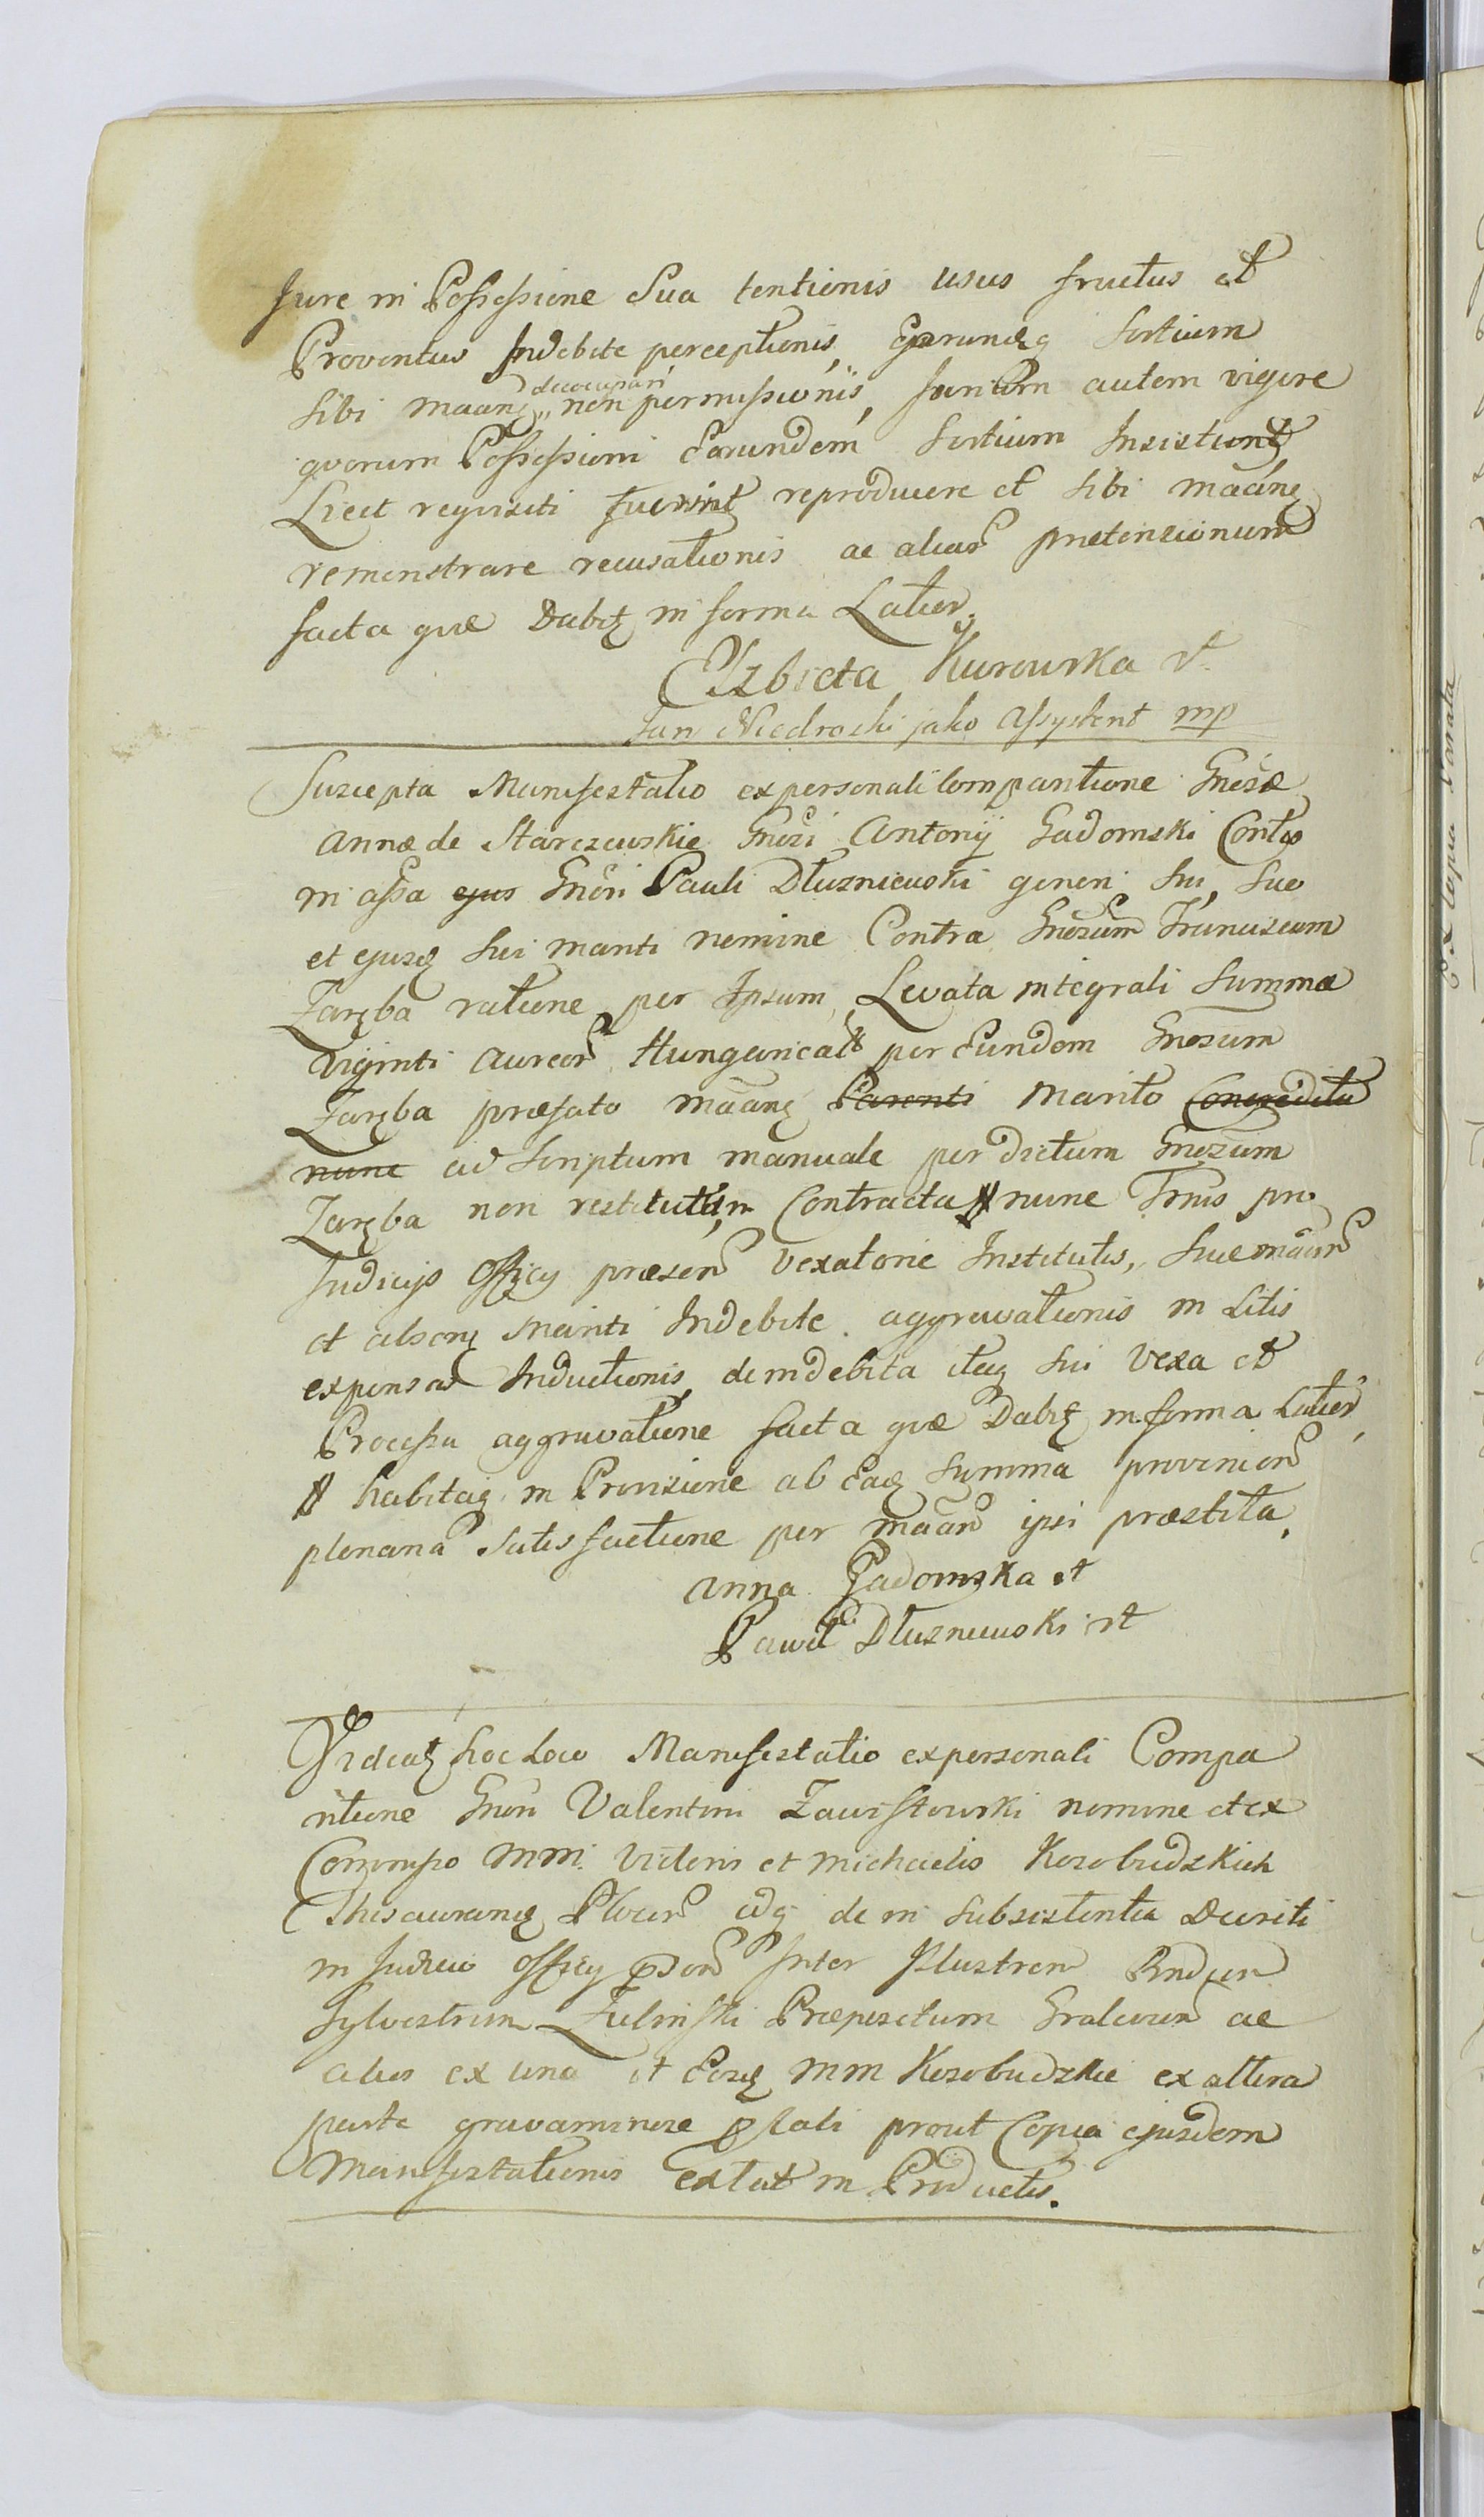 Jure in Possessione Sua tentionis usus fructus et
Proventus Indebite perceptionis, Earundeq Sortium
sibi maane deoccupari non permissionis, Jurium autem vigore
quorum Possessioni Earundem Sortium Insistunt
Licet requisiti fuerint reproducere et sibi maane
remonstrare recusationis ac aliar praetensionum
facta quae Dabit in forma Latior.
Elzbieta Kurowska vt
Jan Niedroski jako assystent mp
Suscepta Manifestatio ex personali Comparitione Gnesae
Annae de Starczewskie Gnesi Antonij Gadomski Contis
in assa ejus Gnesi Pauli Dłuzniewski generi sui, suo
et ejusq sui mariti nomine Contra Gnesum Franciscum
Zaręba ratione per Ipsum, Levata integrali Summa
viginti aureor Hungarical per Eundem Gnesum
Zaręba praefato maane Parenti Marito Congredita
nunc ad Scriptum manuale per dictum Gnesum
Zaręba non restitutum Contracta nunc Trnis pro
Judicijs Officij praesen vexatorie Institutis, suae maan
et absen Mariti Indebite aggravationis in Litis
expensas Inductionis de indebita itaq sui Vexa et
Processu aggravatione facta quae Dabit in forma Latior,
habitaq in Provisione ab Eaq Summa provenien
plenaria satisfactione per maan ipsi praestita.
Anna Gadomska vt
Paweł Dłuzniewski vt
Videat hoc Loco Manifestatio ex personali Compa
ritione Gnesi Valentini Zawistowski nomine et ex
Commisso MM. Victoris et Michaelis Kozobudzkich
Thesauraria Plocen idq de in subsistentia Decreti
in Judicio Officij Inter Illustrem Rndum
Sylvestrum Zulinski Praepositum Gralecen ac
alios ex una et Eosq MM Kozobudzkie ex altera
parte gravaminose lati prout Copia ejusdem
Manifestationis extat in Productis.
Ex Copia Vocata